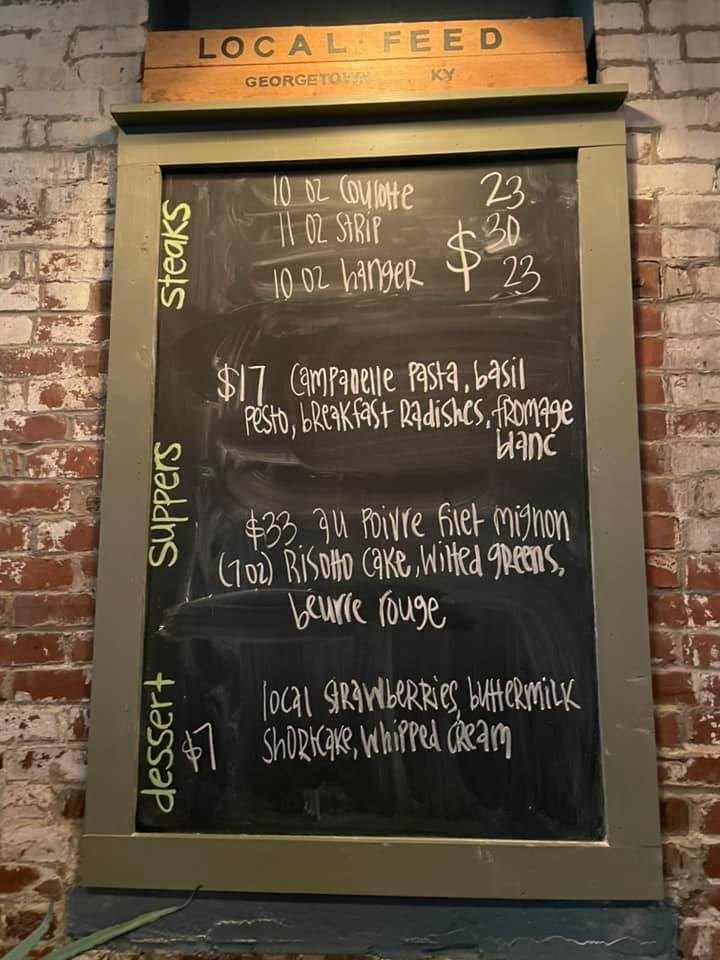 LOCAL FEED
GEORGETOWN KY
steaks
10 oz Coulotte 23
11 oz strip $30
10 oz hanger 23
suppers
$17 Campanelle pasta, basil
pesto, breakfast radishes, fromage
blanc
$33 au poivre filet mignon
(7oz) Risotto Cake, wilted greens,
beurre rouge
dessert
local strawberries, buttermilk
$7 shortcake, whipped cream